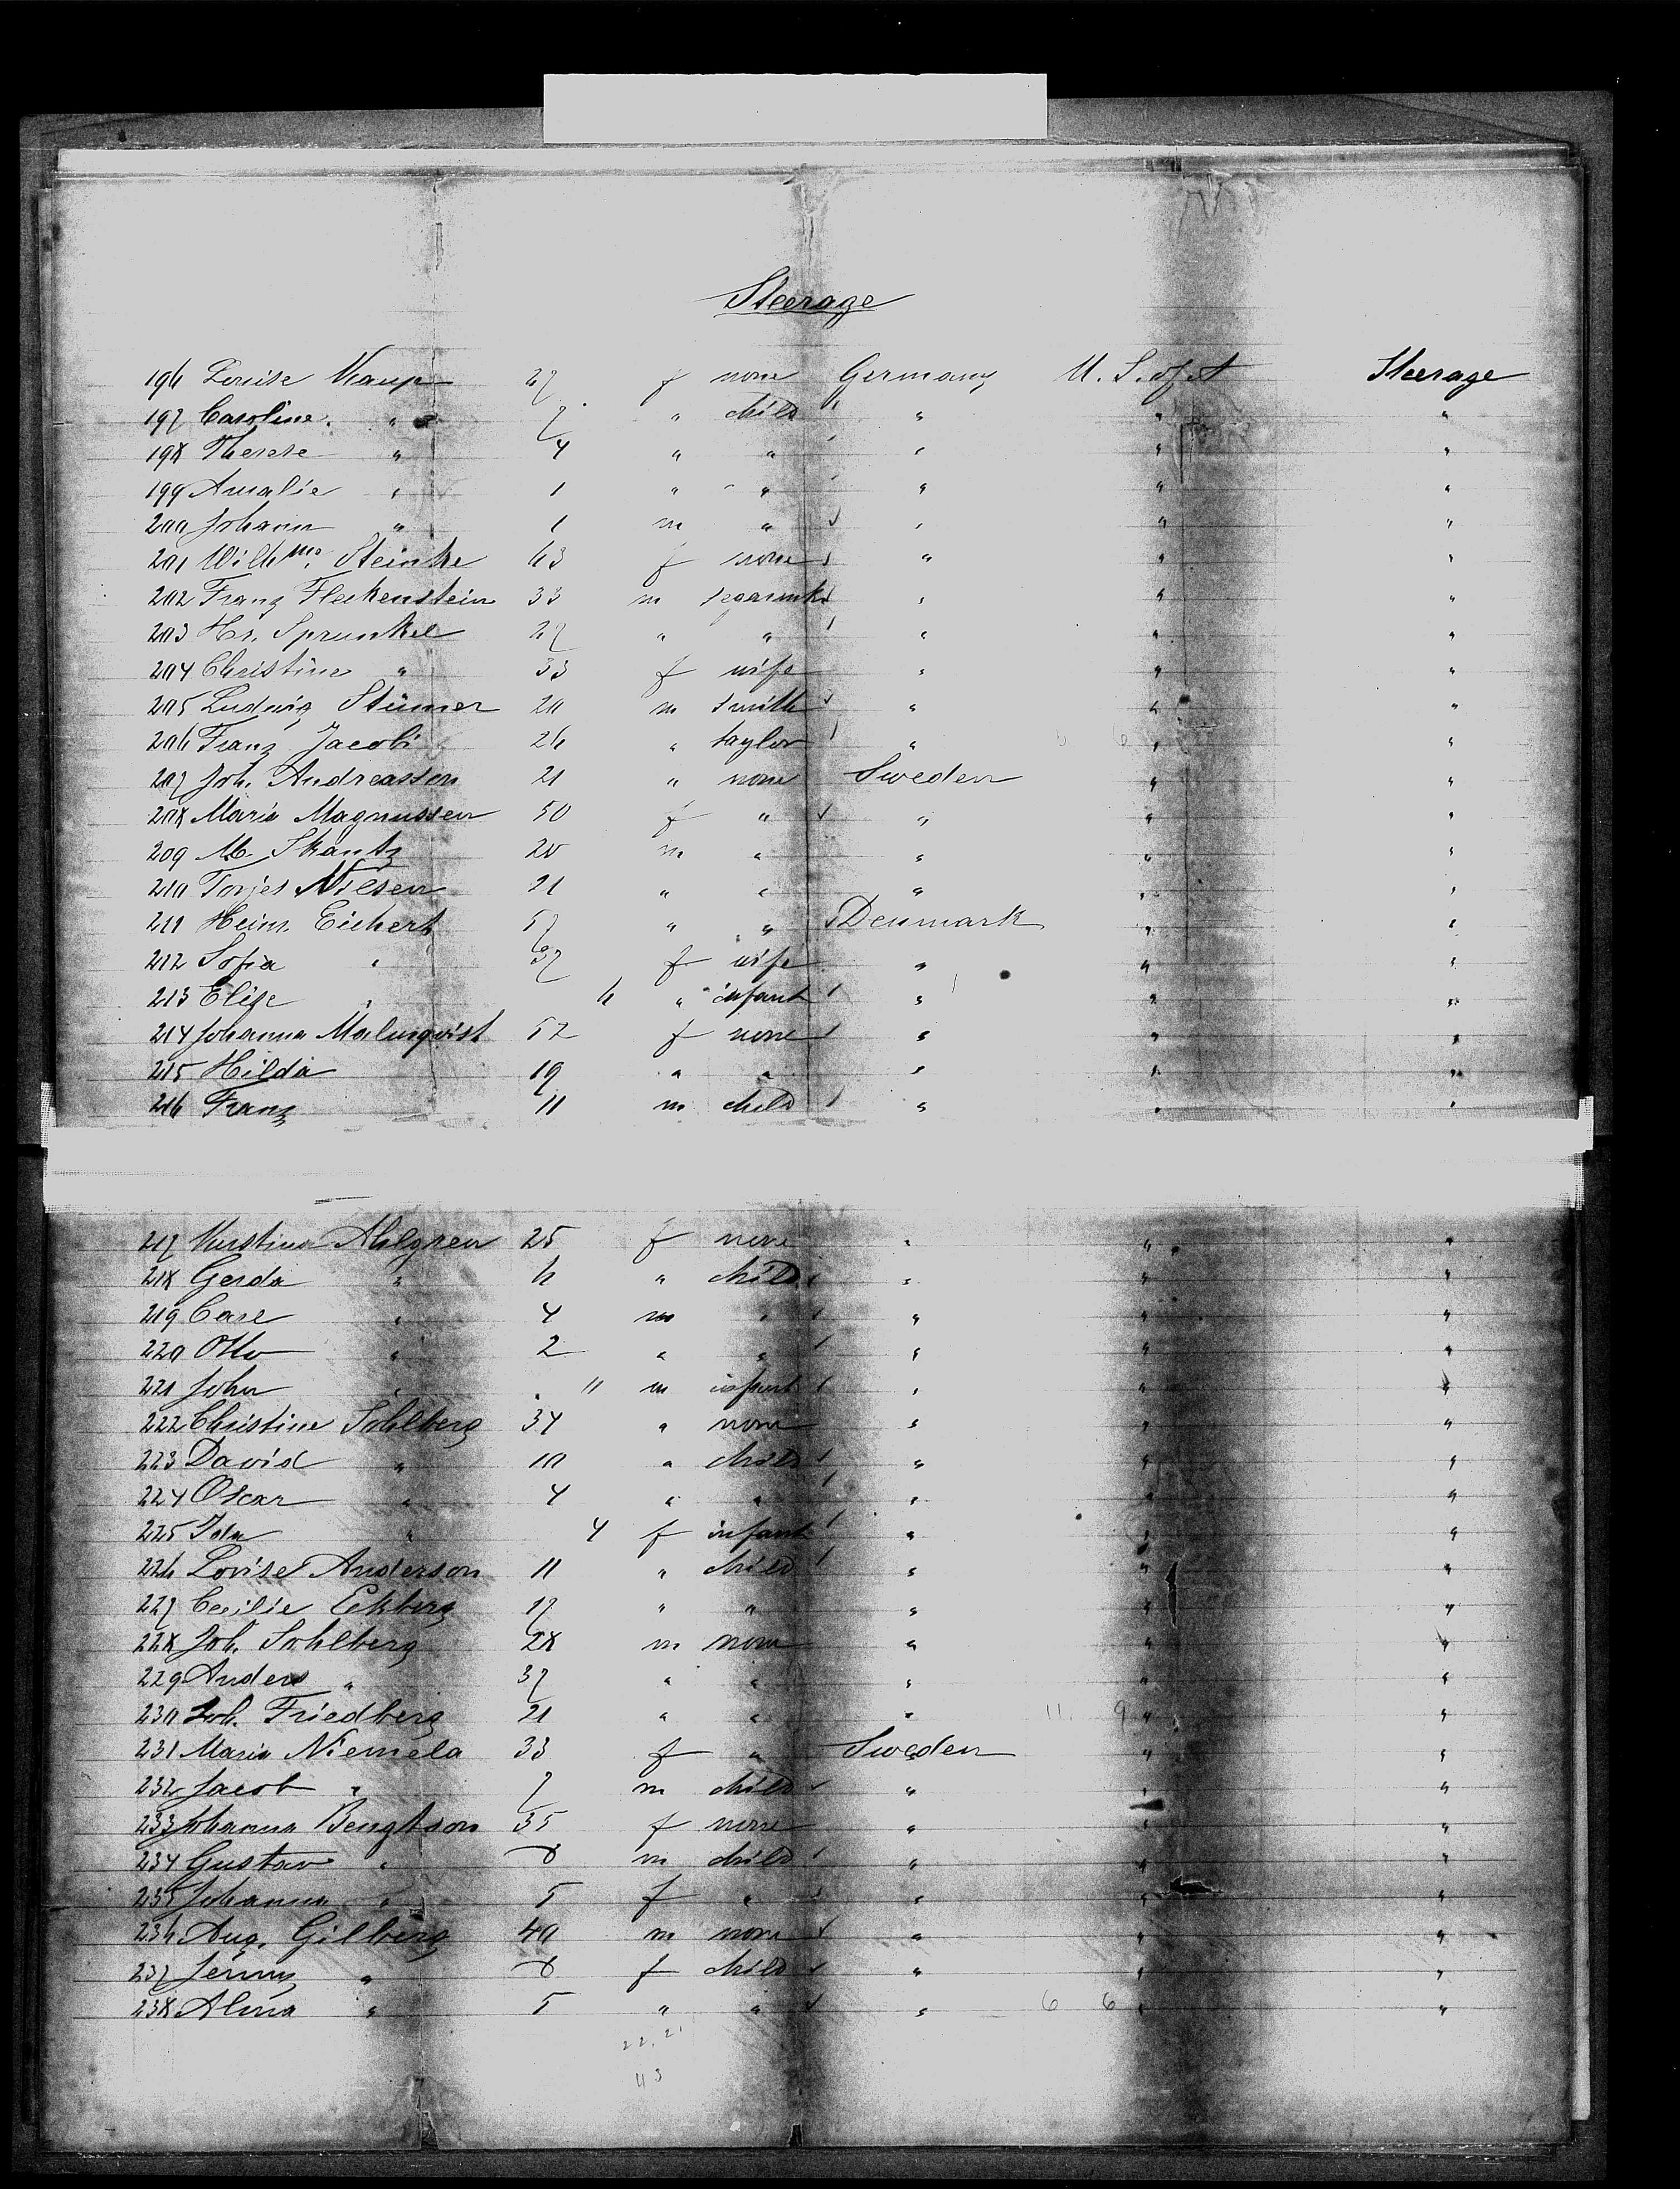 Steerage
196 Louise Kaup 27 f none Germany U. S. of A Steerage
197 Caroline " 7 " child " " "
198 Therese " 4 " " " " "
199 Amalie " 1 " " " " "
200 Johann " 1 m " " " "
201 Wilhme. Steinke 63 f none " " "
202 Franz Fleckenstein 33 m segarmkr " " "
203 Hr. Sprunkel 27 " " " " "
204 Christine " 33 f wife " " "
205 Ludwig Stümer 20 m smith " " "
206 Franz Jacobi 26 " taylor " " "
207 Joh. Andreasson 21 " none Sweden " "
208 Maria Magnussen 50 f " " " "
209 M. Skantz 20 m " " " "
210 Torjes Nilsen 21 " " " " "
211 Heinr. Eichert 57 " " Denmark " "
212 Sofia " 37 f wife " " "
213 Elise " 6 " infant " " "
214 Johanna Malmqvist 52 f none " " "
215 Hilda 19 " " " " "
216 Franz 11 m child " " "
217 Kerstina Ahlgren 25 f none " " "
218 Gerda " 6 " child " " "
219 Carl " 4 m " " " "
220 Otto " 2 " " " " "
221 John " 11 m infant " " "
222 Christine Sohlberg 34 " none " " "
223 David " 10 " child " " "
224 Oscar " 4 " " " " "
225 Ida " 4 f infant " " "
226 Lovise Anderson 11 " child " " "
227 Cecilie Ekberg 17 " " " " "
228 Joh. Sohlberg 28 m none " " "
229 Anders " 37 " " " " "
230 Joh. Friedberg 21 " " " 11. 9 " "
231 Maria Niemela 33 f " Sweden " "
232 Jacob " 7 m child " " "
233 Johanna Bengtson 35 f none " " "
234 Gustav " 8 m child " " "
235 Johanna " 5 f " " " "
236 Aug. Gilberg 40 m none " " "
237 Jenny " 8 f child " " "
238 Alma " 5 " " " 6 6 " "
22. 21
43